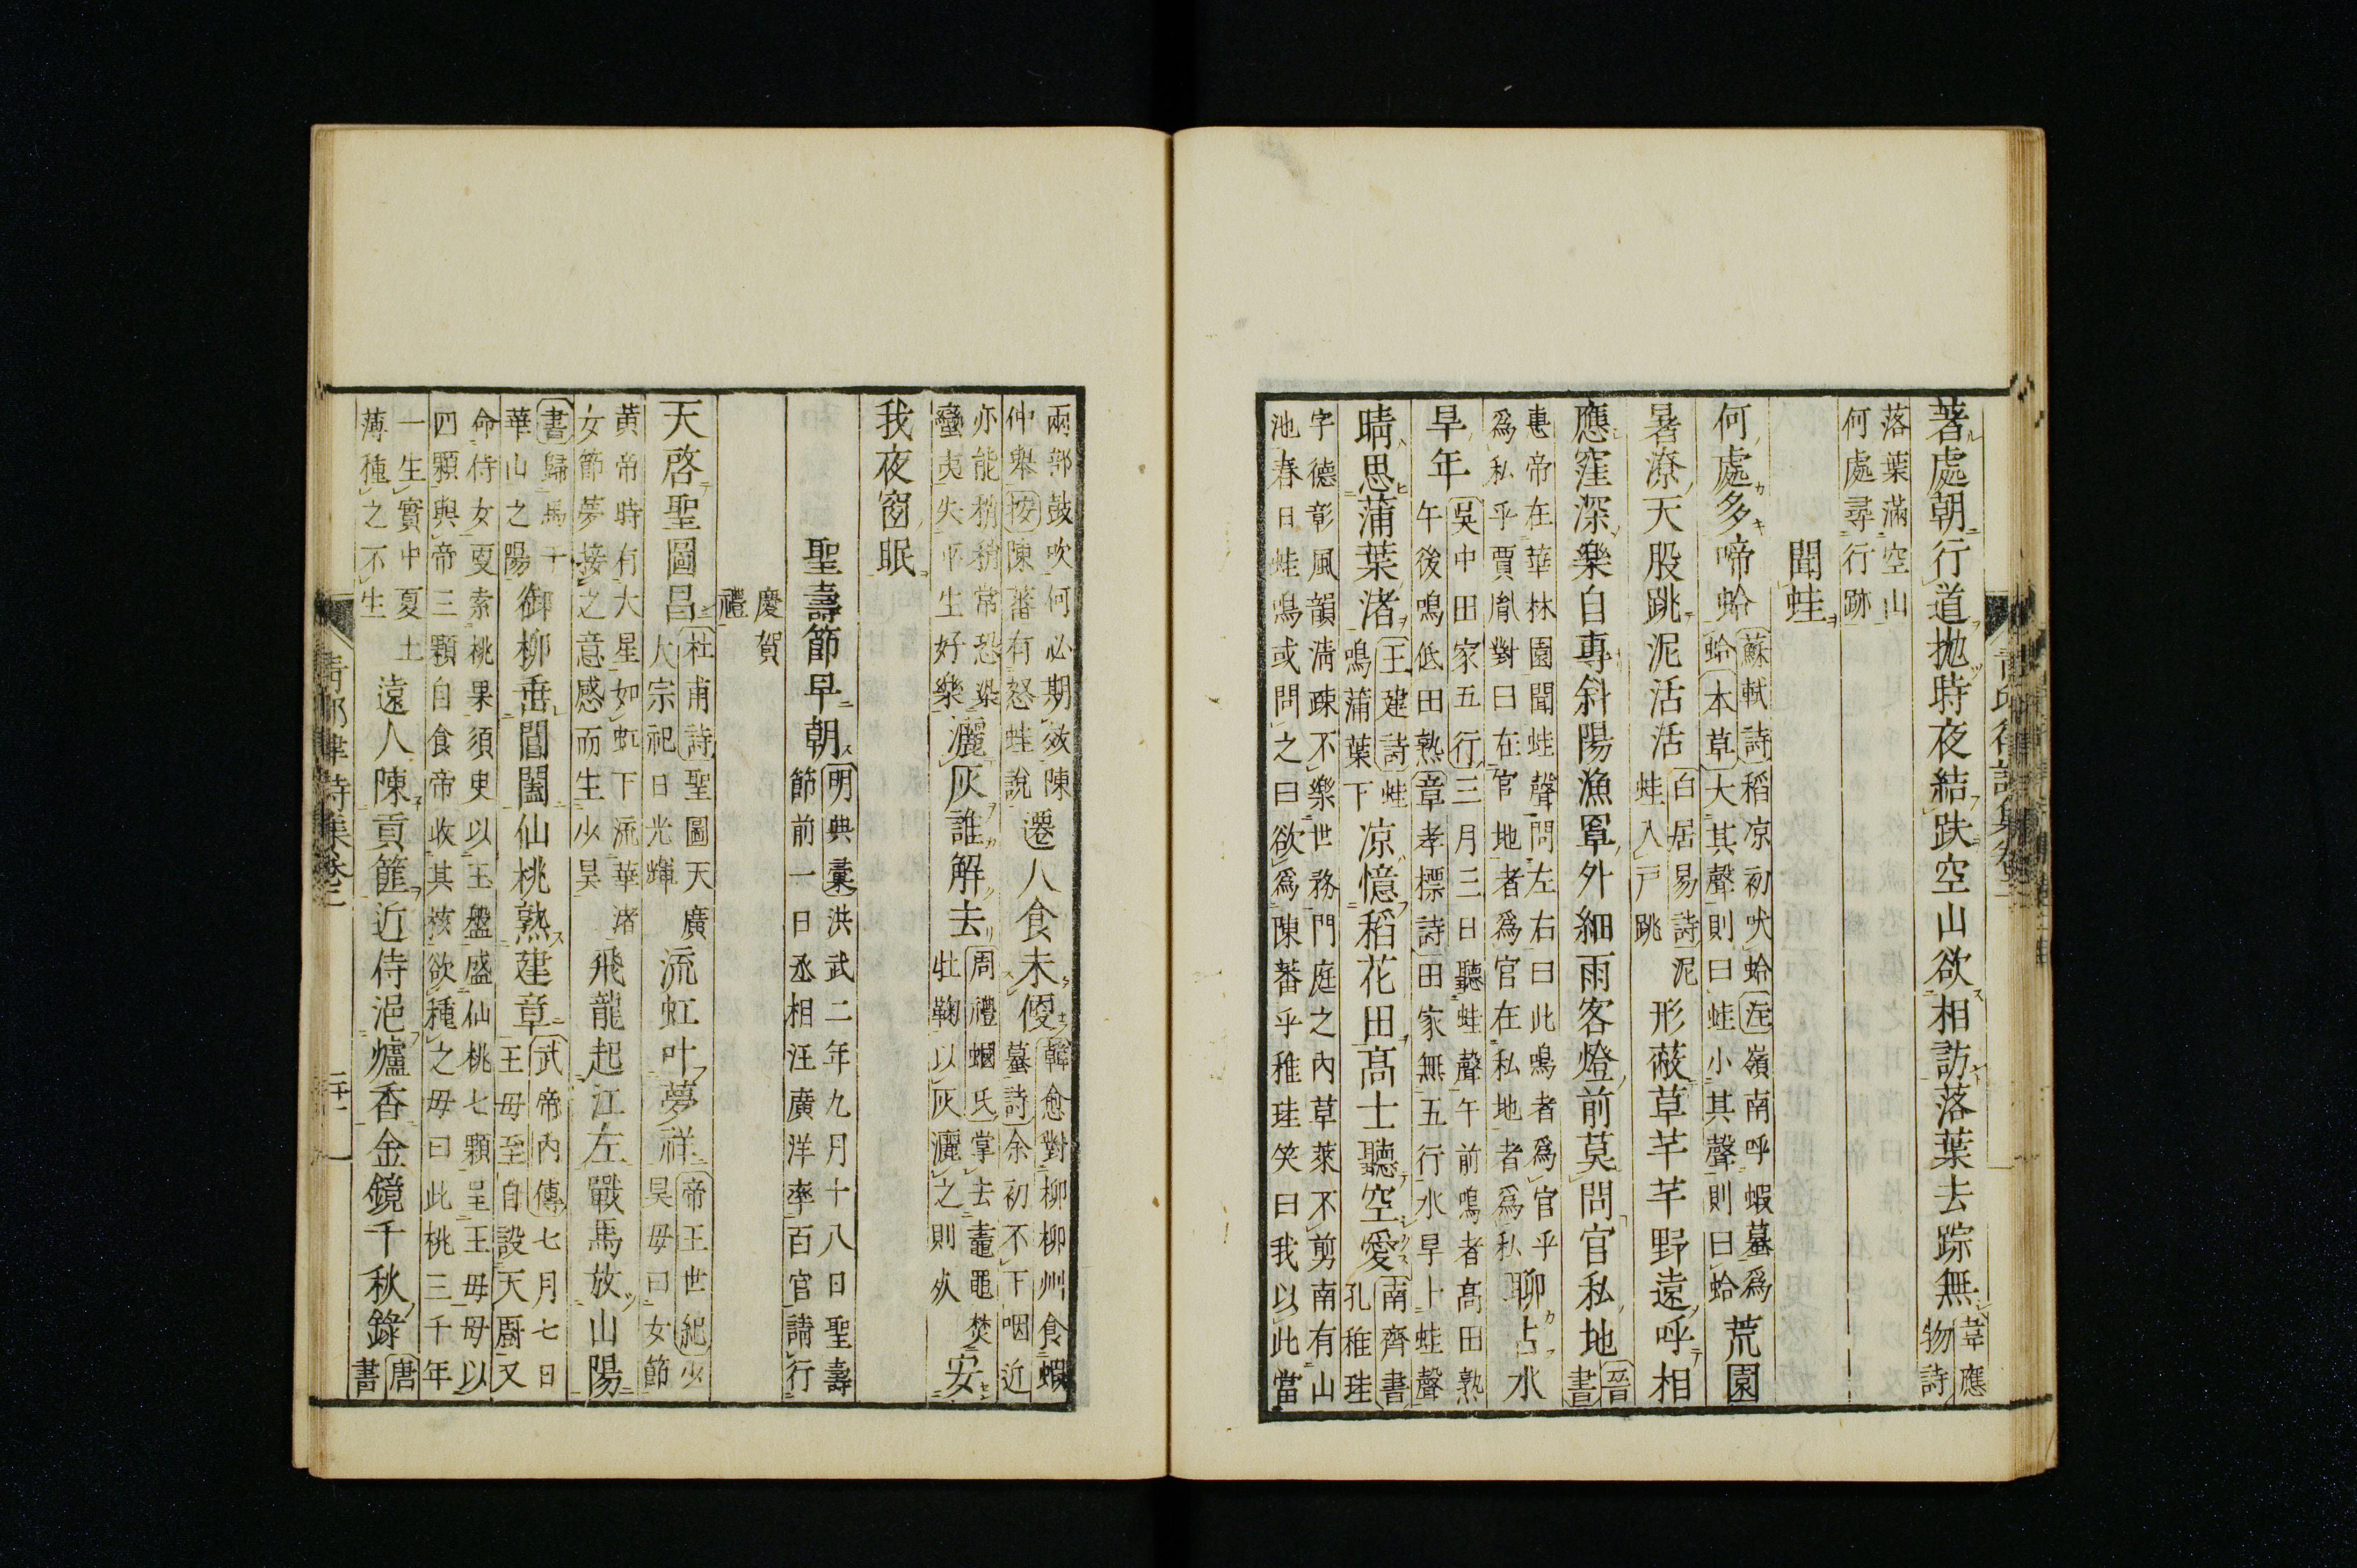 著處朝行道抛時夜結趺空山欲相訪落葉去踪無韋應物詩
落葉滿空山
何處尋行跡
聞蛙
何處多啼蛤蘇軾詩稻凉初吠蛤注嶺南呼蝦蟇爲蛤本草大其聲則曰蛙小其聲則曰蛤荒園
暑潦天股跳泥活活白居易詩泥蛙入戸跳形蔽草芊芊野遠呼相
應窪深樂自專斜陽漁罩外細雨客燈前莫問官私地晉書
惠帝在華林園聞蛙聲問左右曰此鳴者爲官乎
爲私乎賈胤對曰在官地者爲官在私地者爲私聊占水
早年吳中田家五行三月三日聽蛙聲午前鳴者髙田熟
午後鳴低田熟章孝標詩田家無五行水旱卜蛙聲
晴思蒲葉渚王建詩蛙鳴蒲葉下凉憶稻花田髙士聽空愛南齊書孔稚珪
字德彰風韻淸疎不樂世務門庭之內草萊不剪南有山
池春日蛙鳴或問之曰欲爲陳蕃乎稚珪笑曰我以此當
兩部鼓吹何必期效陳
仲舉按陳蕃有怒蛙說遷人食未優韓愈對柳柳州食蝦蟇詩余初不下咽近
亦能稍稍常恐染
蠻夷失平生好樂灑灰誰解去周禮蟈氏掌去鼃黽焚牡鞠以灰灑之則死安
我夜窗眠
聖壽節早朝明典彙洪武二年九月十八日聖壽
節前一日丞相汪廣洋率百官請行
慶賀
禮
天啓聖圖昌杜甫詩聖圖天廣大宗祀日光輝流虹叶夢祥帝王世紀少昊母曰女節
黄帝時有大星如虹下流華渚
女節夢接之意感而生少昊飛龍起江左戰馬放山陽
書歸馬于
華山之陽御柳垂閶闔仙桃熟建章武帝內傳七月七日王母至自設天厨又
命侍女更索桃果須臾以玉盤盛仙桃七顆呈王母母以
四顆與帝三顆自食帝收其核欲種之母曰此桃三千年
一生實中夏土
薄種之不生遠人陳貢篚近侍浥爐香金鏡千秋錄唐書
青邱律詩集卷二